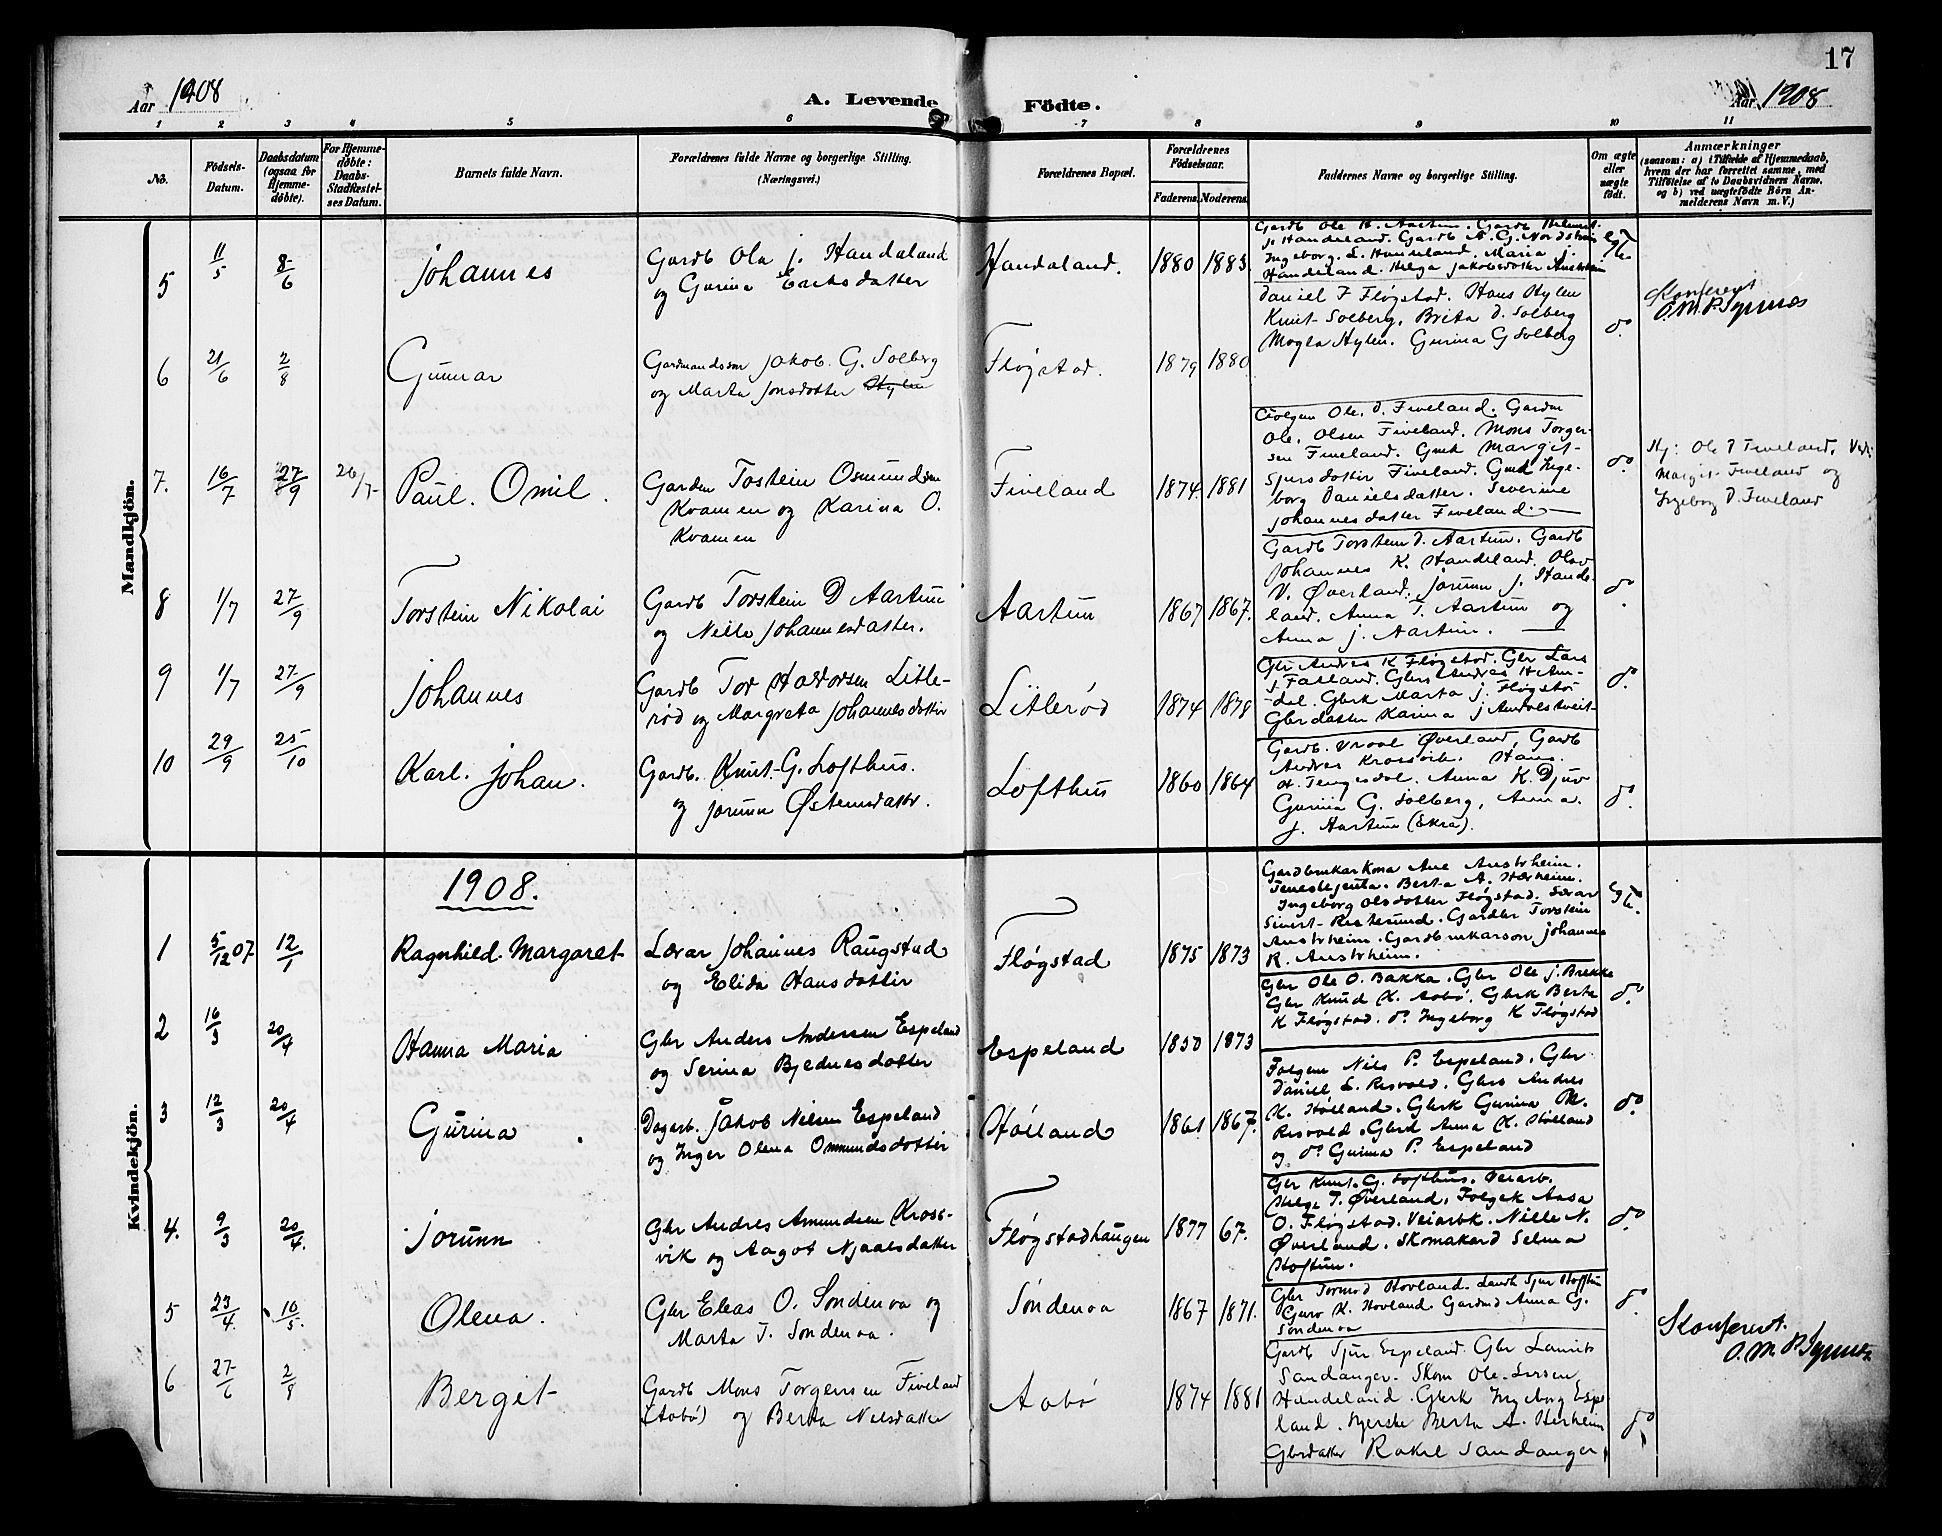 17
Aar 1908
A. Levende Födte.
Aar 1908
1 2 3 4 5 6 7 8 9 10 11
No.
Födsels-
Datum.
Daabsdatum
(ogsaa for
Hjemme-
döbte).
For Hjemme-
döbte:
Daabs-
Stadfæstel-
ses Datum.
Barnets fulde Navn.
Forældrenes fulde Navne og borgerlige Stilling.
(Næringsvei.)
Forældrenes Bopæl.
Forældrenes
Födselsaar.
Faderens. Moderens.
Faddernes Navne og borgerlige Stilling.
Om ægte
eller
uægte
födt.
Anmærkninger
(saasom: a) i Tilfælde af Hjemmedaab,
hvem der har forrettet samme, med
Tilföielse af to Daabsvidners Navne,
og b) ved uægtefödte Börn An-
melderens Navn m. V.)
Mandkjön.
5 11/5 8/6 Johannes
Gardb Ola J. Handaland
og Gurina Eriksdatter
Handaland. 1880 1883.
Gardb Ole K. Aartun. Gardb
J. Handeland. Gardb A. G. Nordstrøm
Ingeborg. L. Maria J.
Handeland. Helga Jakobsdatter Austrheim
Egte
Konferert
O.M.P. Synnes
6 21/6 2/8 Gunnar
Gardmandsson Jakob. G. Solberg
og Marta Jonsdotter Hylen
Fløgstad. 1879 1880
Daniel J Fløgstad. Hans Hylen
Knut Solberg, Brita D. Solberg
Mogla Hylen. Gurina G Solberg
do
7. 16/7 27/9 26/7 Paul. Omil.
Garden Tostein Osmundsen
Kvamen og Karina O.
Kvamen
Fiveland 1874. 1881
Ole. D. Fiveland. Gardm
Ole. Olsen Fiveland. Mons Torger-
sen Fiveland. Gmk Margit
Sjursdotter Fiveland. Gmk Inge-
borg Danielsdatter. Severine
Johannesdatter Fiveland.
do
Hj: Ole D Fiveland, Vid:
Margit Fiveland og
Ingeborg D. Fiveland
8 1/7 27/9 Torstein Nikolai
Gardb Torstein D Aartun
og Nille Johannesdatter.
Aartun 1867 1867.
Gardb Torstein D. Aartun. Gardb
Johannes K. Handeland. Olav
V. Øverland. Jorunn J. Hande-
land. Anna T. Aartun og
Anna J. Aartun.
do
9 1/7 27/9 Johannes
Gardb Tor Haldorsen Litle-
rød og Margreta Johannesdotter
Litlerød 1874 1878
Gbr Andres K Fløgstad. Gbr Lars
J. Fatland. Gbrs Andres H
-dal. Gbrk Marta J. Fløgsta
Gbrdatter Karina J Andvestveit
do
10 29/9 25/10 Karl. Johan.
Gardb. Knut G. Lofthus.
og Jorunn Østensdatter.
Lofthus 1860 1864
Gardb. Vraal Øverland, Gardb
Andres Krossvik. Hans.
H. Tengesdal. Anna K. Djuv
Gurina G. Solberg, Anna.
J. Aartun (Ekra).
do
Kvindekjön.
1908.
1 5/12 07 12/1 Ragnhild Margaret
Lærar Johannes Raugstad
og Elida Hansdotter
Fløgstad 1875 1873
Gardbrukarkona Ane Austrheim.
Tenestejenta. Berta A. Hærheim.
Ingeborg Olsdotter Fløgstad. Lærar
Sivert Gardbr Torstein
Austrheim. Gardbrukarson Johannes
R. Austrheim.
Egte.
2 16/3 20/4 Hanna Maria
Gbr Anders Andersen Espeland
og Serina Bjednesdotter
Espeland 1850 1873
Gbr Ole O. Bakka. Gbr Ole J. Brekke
Gbr Knud K. Aabø. Gbrk Berta
K Fløgstad. do Ingeborg K Fløgstad
do
3 12/3 20/4 Gurina
Dagarb. Jakob Nilsen Espeland
og Inger Olena Ommundsdotter
Hålland 1861. 1867.
Folgem Nils P. Espeland. Gbr
Daniel L. Risvold. Gbrs Andres
K. Hølland. Gbrk Gurina M.
Risvold. Gbrd Anna K. Hølland
og do Gurina P. Espeland
do
4. 9/3 20/4. Jorunn
Gbr Andres Amundsen Kross-
vik og Aagot Njaalsdatter
Fløgstadhaugen 1877 67.
Gbr Knut. G. Lofthus. Veiarb.
Helge T. Øverland, Folgek Aasa
O. Fløgstad. Veiarbk. Nille N.
Øverland. Skomakard Selma
Hoftun.
do
5 23/4. 10/5. Olena.
Gbr Elias O. Sondenaa og
Marta T. Sondenaa.
Søndenaa 1867 1871.
Gbr Tormod Hovland. Landh Sjur Hoftun
Guro K. Hovland Gardmd Anna G.
Søndenaa
do
Konferert.
O. M. P. Synnes
6 27/6 2/8 Berget
Gardb Mons Torgersen Fiveland
(Aabø) og Berta Nilsdatter
Aabø 1874 1881
Gardb Sjur Espeland. Gbr Laurits
Sandanger. Skom Ole. Larsen
Handeland. Gbrk Ingeborg Espe
land. Berta A. Herheim
Gbrdatter Rakel Sandanger
do